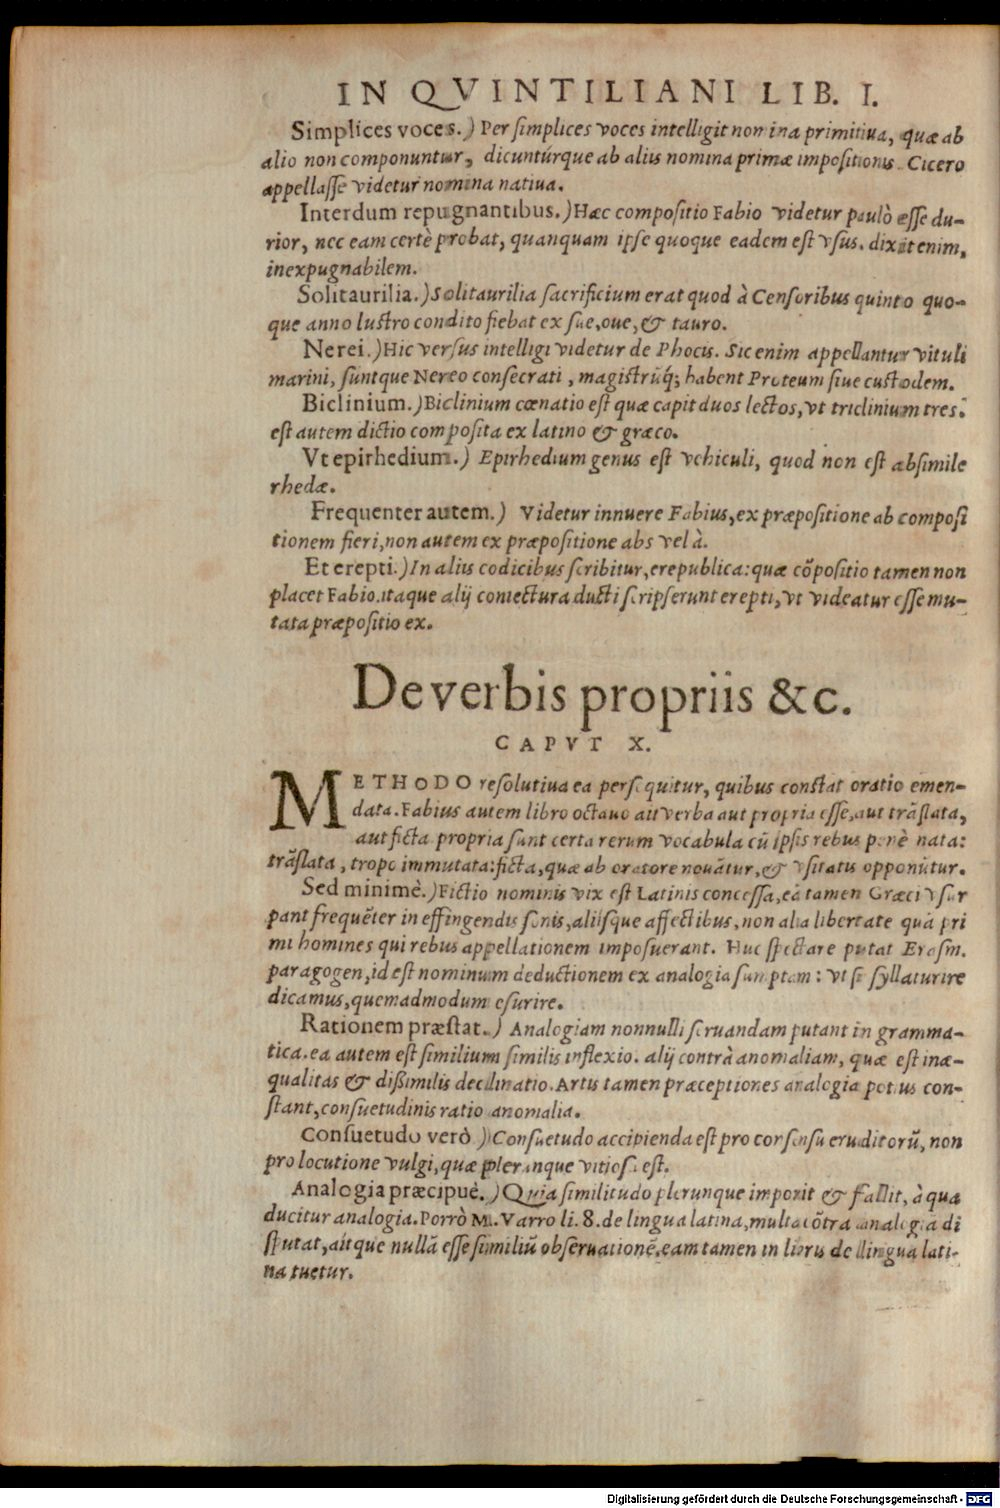 IN QVINTILIANI LIB. I.
Simplices voces.) Per simplices voces intelligit nomina primitiua, quæ ab
alio non componuntur, dicuntúrque ab aliis nomina primæ impositionis. Cicero
appellasse videtur nomina natiua.
Interdum repugnantibus.) Hæc compositio Fabio videtur paulò esse du-
rior, nec eam certè probat, quanquam ipse quoque eadem est vsus. dixit enim,
inexpugnabilem.
Solitaurilia.) Solitaurilia sacrificium erat quod à Censoribus quinto quo-
que anno lustro condito fiebat ex sue, oue, & tauro.
Nerei.) Hic versus intelligi videtur de Phocis. Sic enim appellantur vituli
marini, súntque Nereo consecrati, magistrũq; habent Proteum siue custodem.
Biclinium.) Biclinium cœnatio est quæ capit duos lectos, vt triclinium tres.
est autem dictio composita ex latino & græco.
Vt epirhedium.) Epirhedium genus est vehiculi, quod non est absimile
rhedæ.
Frequenter autem.) Videtur innuere Fabius, ex præpositione ab composi
tionem fieri, non autem ex præpositione abs vel à.
Et erepti.) In aliis codicibus scribitur, erepublica: quæ cõpositio tamen non
placet Fabio. itaque alij coniectura ducti scripserunt erepti, vt videatur esse mu-
tata præpositio ex.
De verbis propriis &c.
CAPVT X.
METHODO resolutiua ea persequitur, quibus constat oratio emen-
data. Fabius autem libro octauo ait verba aut propria esse, aut trãslata,
aut ficta propria sunt certa rerum vocabula cũ ipsis rebus penè nata:
trãslata, tropo immutata: ficta, quæ ab oratore nouãtur, & vsitatis opponũtur.
Sed minimè.) Fictio nominis vix est Latinis concessa, eã tamen Græci vsur
pant frequẽter in effingendis sonis, aliisque affectibus, non alia libertate quã pri
mi homines qui rebus appellationem imposuerant. Huc spectare putat Erasm.
paragogen, id est nominum deductionem ex analogia sumptam: vt si syllaturire
dicamus, quemadmodum esurire.
Rationem præstat.) Analogiam nonnulli seruandam putant in gramma-
tica. ea autem est similium similis inflexio. alij contrà anomaliam, quæ est inæ-
qualitas & dißimilis declinatio. Artis tamen præceptiones analogia potius con-
stant, consuetudinis ratio anomalia.
Consuetudo verò.) Consuetudo accipienda est pro consensu eruditorũ, non
pro locutione vulgi, quæ plerunque vitiosa est.
Analogia præcipuè.) Quia similitudo plerunque imponit & fallit, à qua
ducitur analogia. Porrò M. Varro li. 8. de lingua latina, multa cõtra analogiã di
sputat, aitque nullã esse similiũ obseruationẽ, eam tamen in libris de lingua lati-
na tuetur.
Digitalisierung gefördert durch die Deutsche Forschungsgemeinschaft - DFG